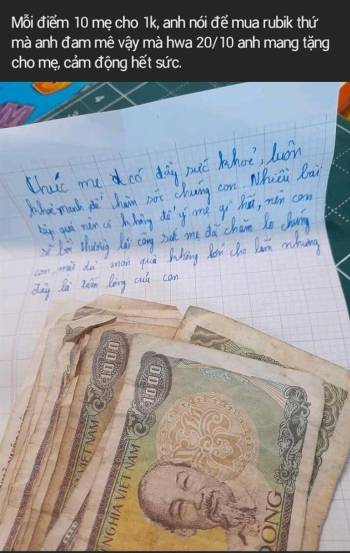 Mỗi điểm 10 mẹ cho 1k, anh nói để mua rubik thứ
mà anh đam mê vậy mà hwa 20/10 anh mang tặng
cho mẹ, cảm động hết sức.
Chúc mẹ có đầy sức khoẻ, luôn
khoẻ mạnh để chăm sóc chúng con. Nhiều bài
tập quá nên có không để ý mẹ gì hết, nên con
sẽ bồi thường lại công sức mẹ đã chăm lo chúng
con, mặc dù món quà không lớn cho lắm nhưng
đây là tấm lòng của con
1000
VIỆT NAM
1000
NGHĨA VIỆT NAM
ĐỒNG